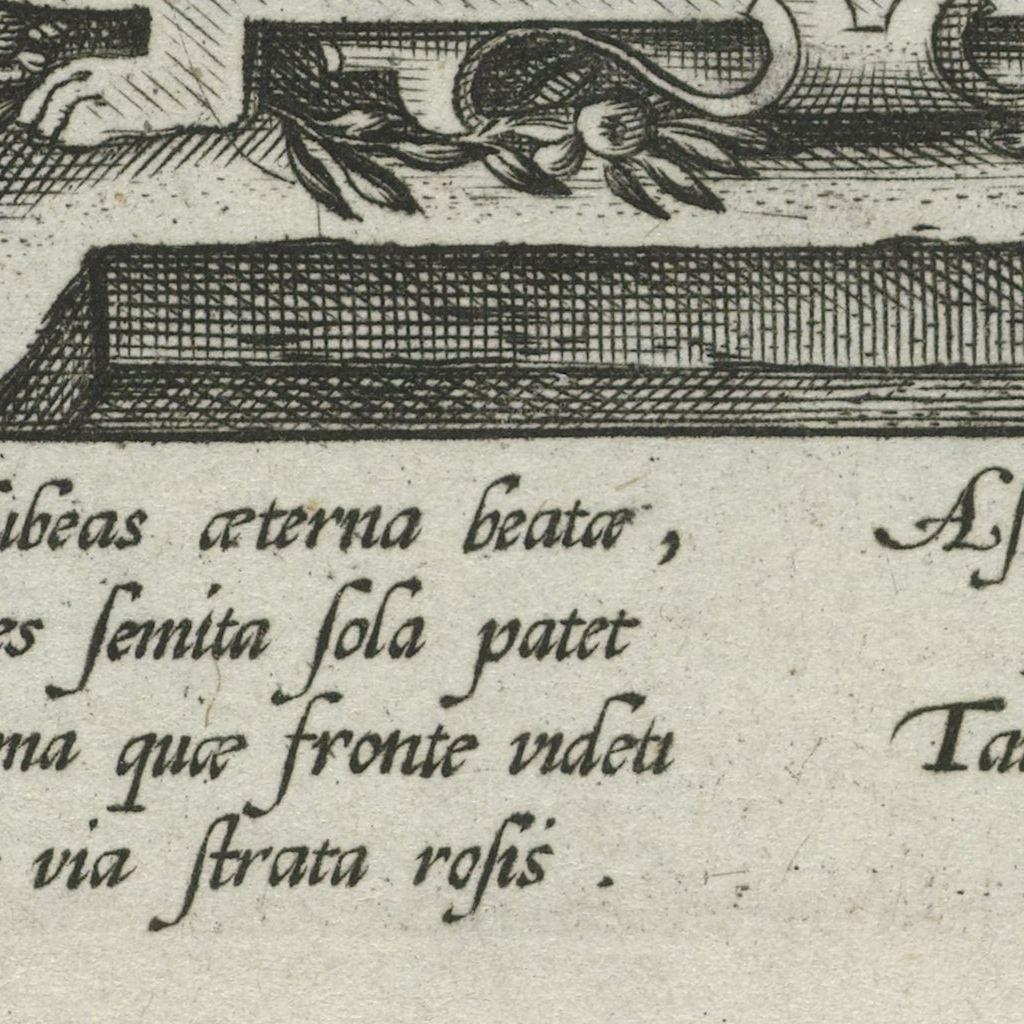 ubeas æterna beatæ,
es ſemita ſola patet
ma quæ fronte videti
via ſtrata roſis.
Aſ
Ta